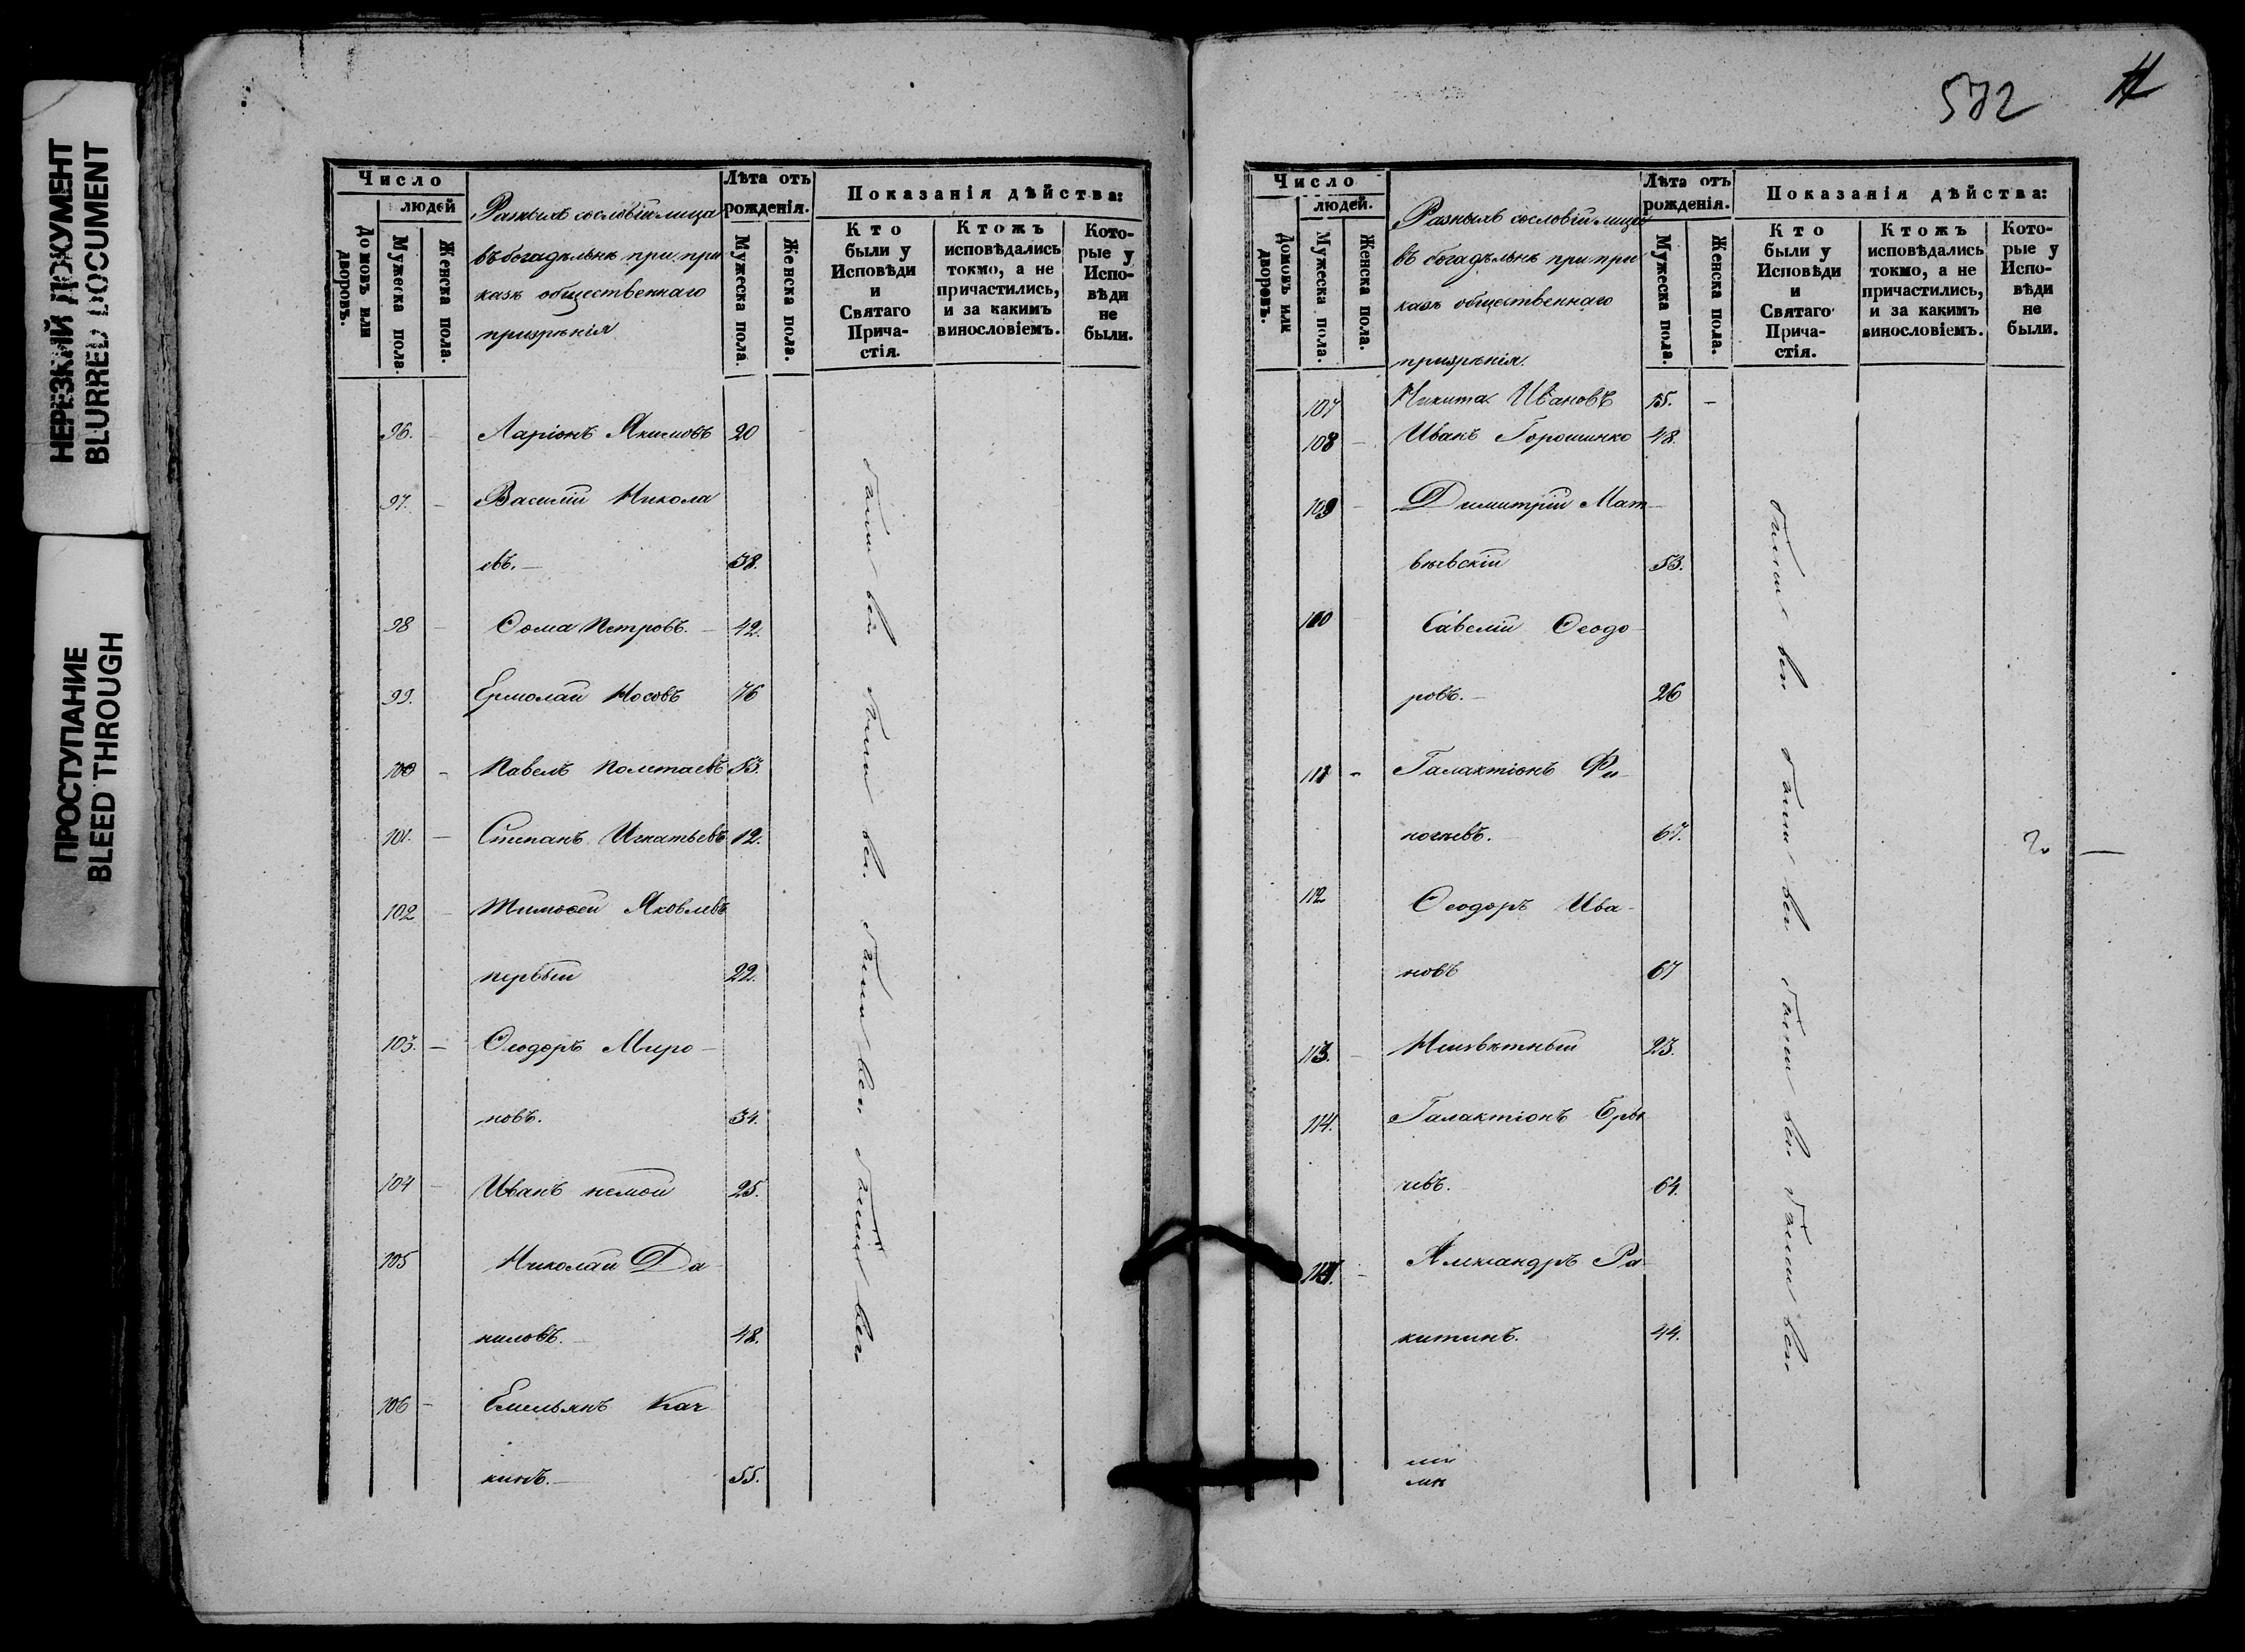 НЕРЕЗКИЙ ДОКУМЕНТ
BLURRED DOCUMENT
ПРОСТУПАНИЕ
BLEED THROUGH
Число
людей
Домовъ или дворовъ.
Мужеска пола.
Женска пола.
Разныхъ сословій лица
въ богадѣльнѣ при при
казѣ общественнаго
призрѣнія
Лѣта отъ
рожденія.
Мужеска пола.
Женска пола.
Показанія дѣйства:
Кто
были у
Исповѣди
и
Святаго
Прича-
стія.
Ктожъ
исповѣдались
токмо, а не
причастились,
и за какимъ
винословіемъ.
Кото-
рые у
Испо-
вѣди
не
были.
96. Ларіонъ Якимовъ 20
97. Василій Никола
евъ. 58.
98 Ѳома Петровъ. 42.
99. Ермолай Носовъ 76
100 Павелъ Полетаевъ 53.
101. Степанъ Игнатьевъ 12.
102 Тимоѳей Яковлевъ
первый 22.
103. Ѳеодоръ Миро-
новъ. 34.
104 Иванъ немой 25.
105 Николай Да
ниловъ. 48.
106 Емельянъ Кач
кинъ. 55.
были вси были вси были вси были вси
572
Число
людей.
Домовъ или дворовъ.
Мужеска пола.
Женска пола.
Разныхъ сословій лица
въ богадѣльнѣ при при
казѣ общественнаго
призрѣнія.
Лѣта отъ
рожденія.
Мужеска пола.
Женска пола.
Показанія дѣйства:
Кто
были у
Исповѣди
и
Святаго
Прича-
стія.
Ктожъ
исповѣдались
токмо, а не
причастились,
и за какимъ
винословіемъ.
Кото-
рые у
Испо-
вѣди
не
были.
107 Никита Ивановъ 15. –
108 Иванъ Горошинко 48.
109 Димитрій Мат-
вѣевскій 53.
110 Савелій Ѳеодо-
ровъ. 26
111 Галактіонъ Фи-
ногеевъ. 67.
112 Ѳеодоръ Ива-
новъ 67
113. Неизвѣтный 23.
114. Галактіонъ
64.
Александръ Ра-
китинъ. 44.
были вси были вси были вси были вси